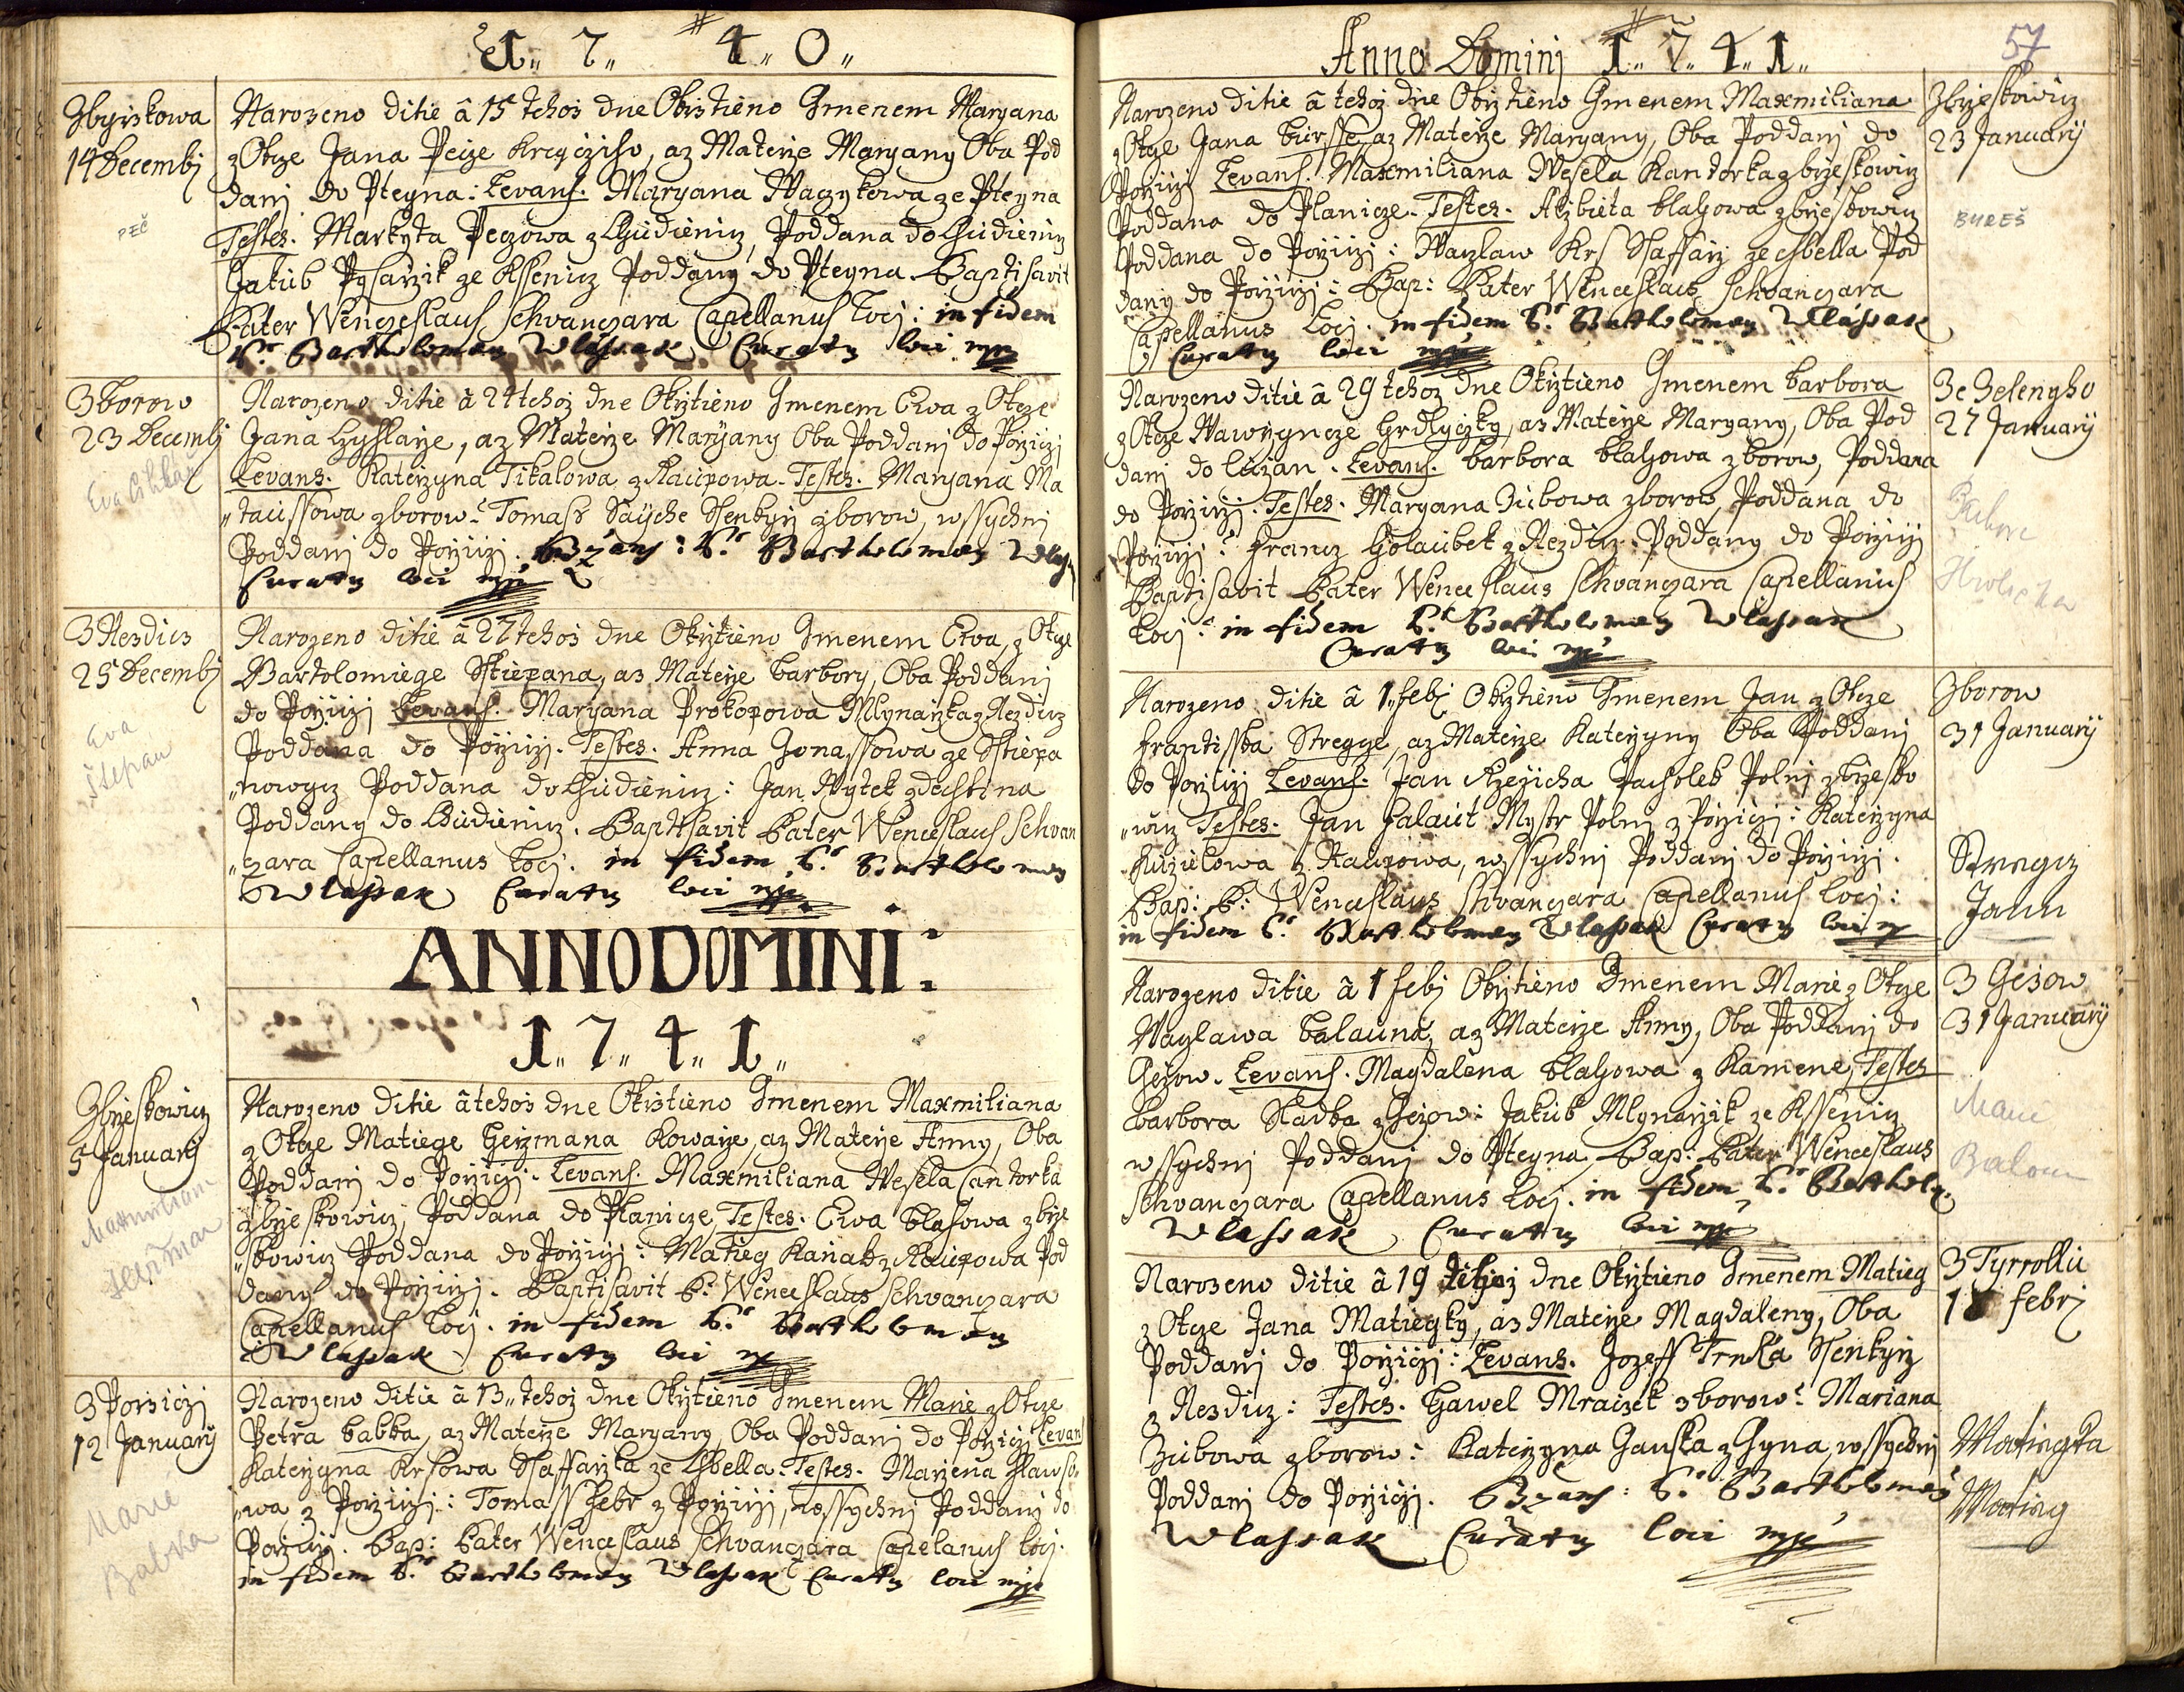 1„ 7„ 4„ 0„
Zbyrskowa
14 Decembj
PEČ
Narozeno ditie â 15 tehoż dne Okrztieno Gmenem Maryana
z Otcze Jana Peize Kregcziho, az Materze Maryany Oba Pod
danj do Pteyna: Levans. Maryana Waczykowa ze Pteyna
Testes. Markyta Peczowa z Chudieniz, Poddana do Chudieniz
Jakub Pysarzik ze Kssenicz Poddany do Pteyna. Baptisavit
Pater Wenczeslaus Schvanczara Capellanus Locj: in fidem
P.r Bartholomaeg Wlassak Curatq loci mp
3 borow
23 Decembj
Eva Cihlář
Narozeno ditie â 24 tehoż dne Okrztieno Gmenem Ewa z Otcze
Jana Czyhlarze, az Materze Maryany Oba Poddanj do Porziczj
Levans. Katerzyna Tikalowa z Raupowa. Testes. Maryana Ma
„taussowa z borow: Tomass Sayche Ssenkyrz z borow, wssychnj
Poddanj do Porziczj. Bzans: P.r Bartholomaeg Wlass
Curatq loci mp
3 Nezdicz
25 Decembj
Eva
Štěpán
Narozeno ditie â 27 tehoż dne Okrztieno Gmenem Ewa, z Otcze
Bartolomiege Sstiepana, az Materze barbory, Oba Poddanj
do Porziczj Levans. Maryana Prokopowa Mlynarzka z Nezdicz
Poddana do Porziczj. Testes. Anna Jonassowa ze Sstiepa
„nowycz Poddana do Chudienicz: Jan Wytek z dehstina
Poddany do Chudienicz. Baptisavit Pater Wenceslaus Schvan
„czara Capellanus Locj. in fidem P.r Bartholomaeg
Wlassak Curatq loci mp
ANNO DOMINI:
1„ 7„ 4„ 1„
Zbrzeskowicz
5 Januarij
Maxmiliana
Heřman
Narozeno ditie â tehoż dne Okrztieno Gmenem Maxmiliana
z Otcze Matiege Herzmana Kowarze, az Materze Anny, Oba
Poddanj do Porziczj. Levans. Maxmiliana Wesela Cantorka
z brzeskowicz, Poddana do Planicze, Testes. Ewa blahowa z brze
„skowicz Poddana do Porziczj: Matieg Kanak z Raupowa Pod
dany do Porziczj. Baptisavit P. Wenceslaus Schvanczara
Capellanus Locj. in fidem P.r Bartholomaeg
Wlassak Curatq loci mp
3 Porziczj
12 Januarij
Marie
Babka
Narozeno ditie â 13„ tehoż dne Okrztieno Gmenem Marie z Otcze
Petra babka, az Materze Maryany, Oba Poddanj do Porziczj Levans
Katerzyna Krsowa Ssaffarzka ze Chbella. Testes. Marzena Hlawso„
„wa z Porziczj: Tomass Hebr z Porziczj, wssychnj Poddanj do
Porziczj. Bap: Pater Wenceslaus Schvanczara Capelanus Locj.
in fidem P.r Bartholomaeg Wlassak Curatq loci mp
Anno Dominj 1„ 7„ 4„ 1„
57
Narozeno ditie â tehoż dne Okrztieno Gmenem Maxmiliana
z Otcze Jana bursse, az Materze Maryany, Oba Poddanj do
Porziczj Levans. Maxmiliana Wesela Kantorka z brzeskowicz
Poddana do Planicze. Testes. Alzbieta blahowa z brzeskowicz
Poddana do Porziczj: Waczlaw Krs Ssaffarz ze chbella Pod
dany do Porziczj: Bap: Pater Wenceslaus Schvanczara
Capellanus Locj. in fidem P.r Bartholomaeg Wlassak
Curatq loci mp
Zbrzeskowicz
23 Januarij
BUREŠ
Narozeno ditie â 29 tehoż dne Okrztieno Gmenem barbora
z Otcze Wawrzyncze Hrdlyczky, az Materze Maryany, Oba Pod
danj do Luzan. Levans. barbora blahowa z borow, Poddana
do Porziczj. Testes. Maryana Zubowa z borow, Poddana do
Porziczj: Francz Holaubek z Nezdicz. Poddany do Porziczj
Baptisavit Pater Wenceslaus Schvanczara Capellanus
Locj: in fidem P.r Bartholomaeg Wlassak
Curatq loci mp
Ze Zelenyho
27 Januarij
Barbora
Hrdlička
Narozeno ditie â 1„ febj Okrztieno Gmenem Jan z Otcze
frantisska Stregcze, az Materze Katerzyny Oba Poddanj
do Porziczj Levans. Jan Rzezicha Pacholek Polnj z brzesko
„wicz Testes. Jan Halaut Mystr Polnj z Porziczj: Katerzyna
Kuzelowa z Raupowa, wssychnj Poddanj do Porziczj.
Bap: P: Wenceslaus Schvanczara Capellanus Locj:
in fidem P.r Bartholomaeg Wlassak Curatq loci mp
Zborow
31 Januarij
Stregcz
Jann
Narozeno ditie â 1 febj Okrztieno Gmenem Marie z Otcze
Waczlawa balauna, az Materze Anny, Oba Poddanj do
Gezow. Levans. Magdalena blahowa z Kamene, Testes
barbora Sladka z Gezow: Jakub Mlynarzik ze Kssenicz
wssychnj Poddanj do Pteyna, Bap: Pater Wenceslaus
Schvanczara Capellanus Locj. in fidem P.r Bartholo.
Wlassak Curatq loci mp
3 Gezow
31 Januarij
Marie
Baloun
Narozeno ditie â 19 tehoż dne Okrztieno Gmenem Matieg
z Otcze Jana Matiegky, az Materze Magdaleny, Oba
Poddanj do Porziczj: Levans. Jozeff Trnka Ssenkyrz
z Nezdicz: Testes. Hawel Mraizek z borow: Mariana
Zubowa z borow: Katerzyna Hauska z Gyna, wssychnj
Poddanj do Porziczj. Bzans: P.r Bartholomaeg
Wlassak Curatq loci mp
3 Tyrrollu
18 febrj
Matiegka
Matieg